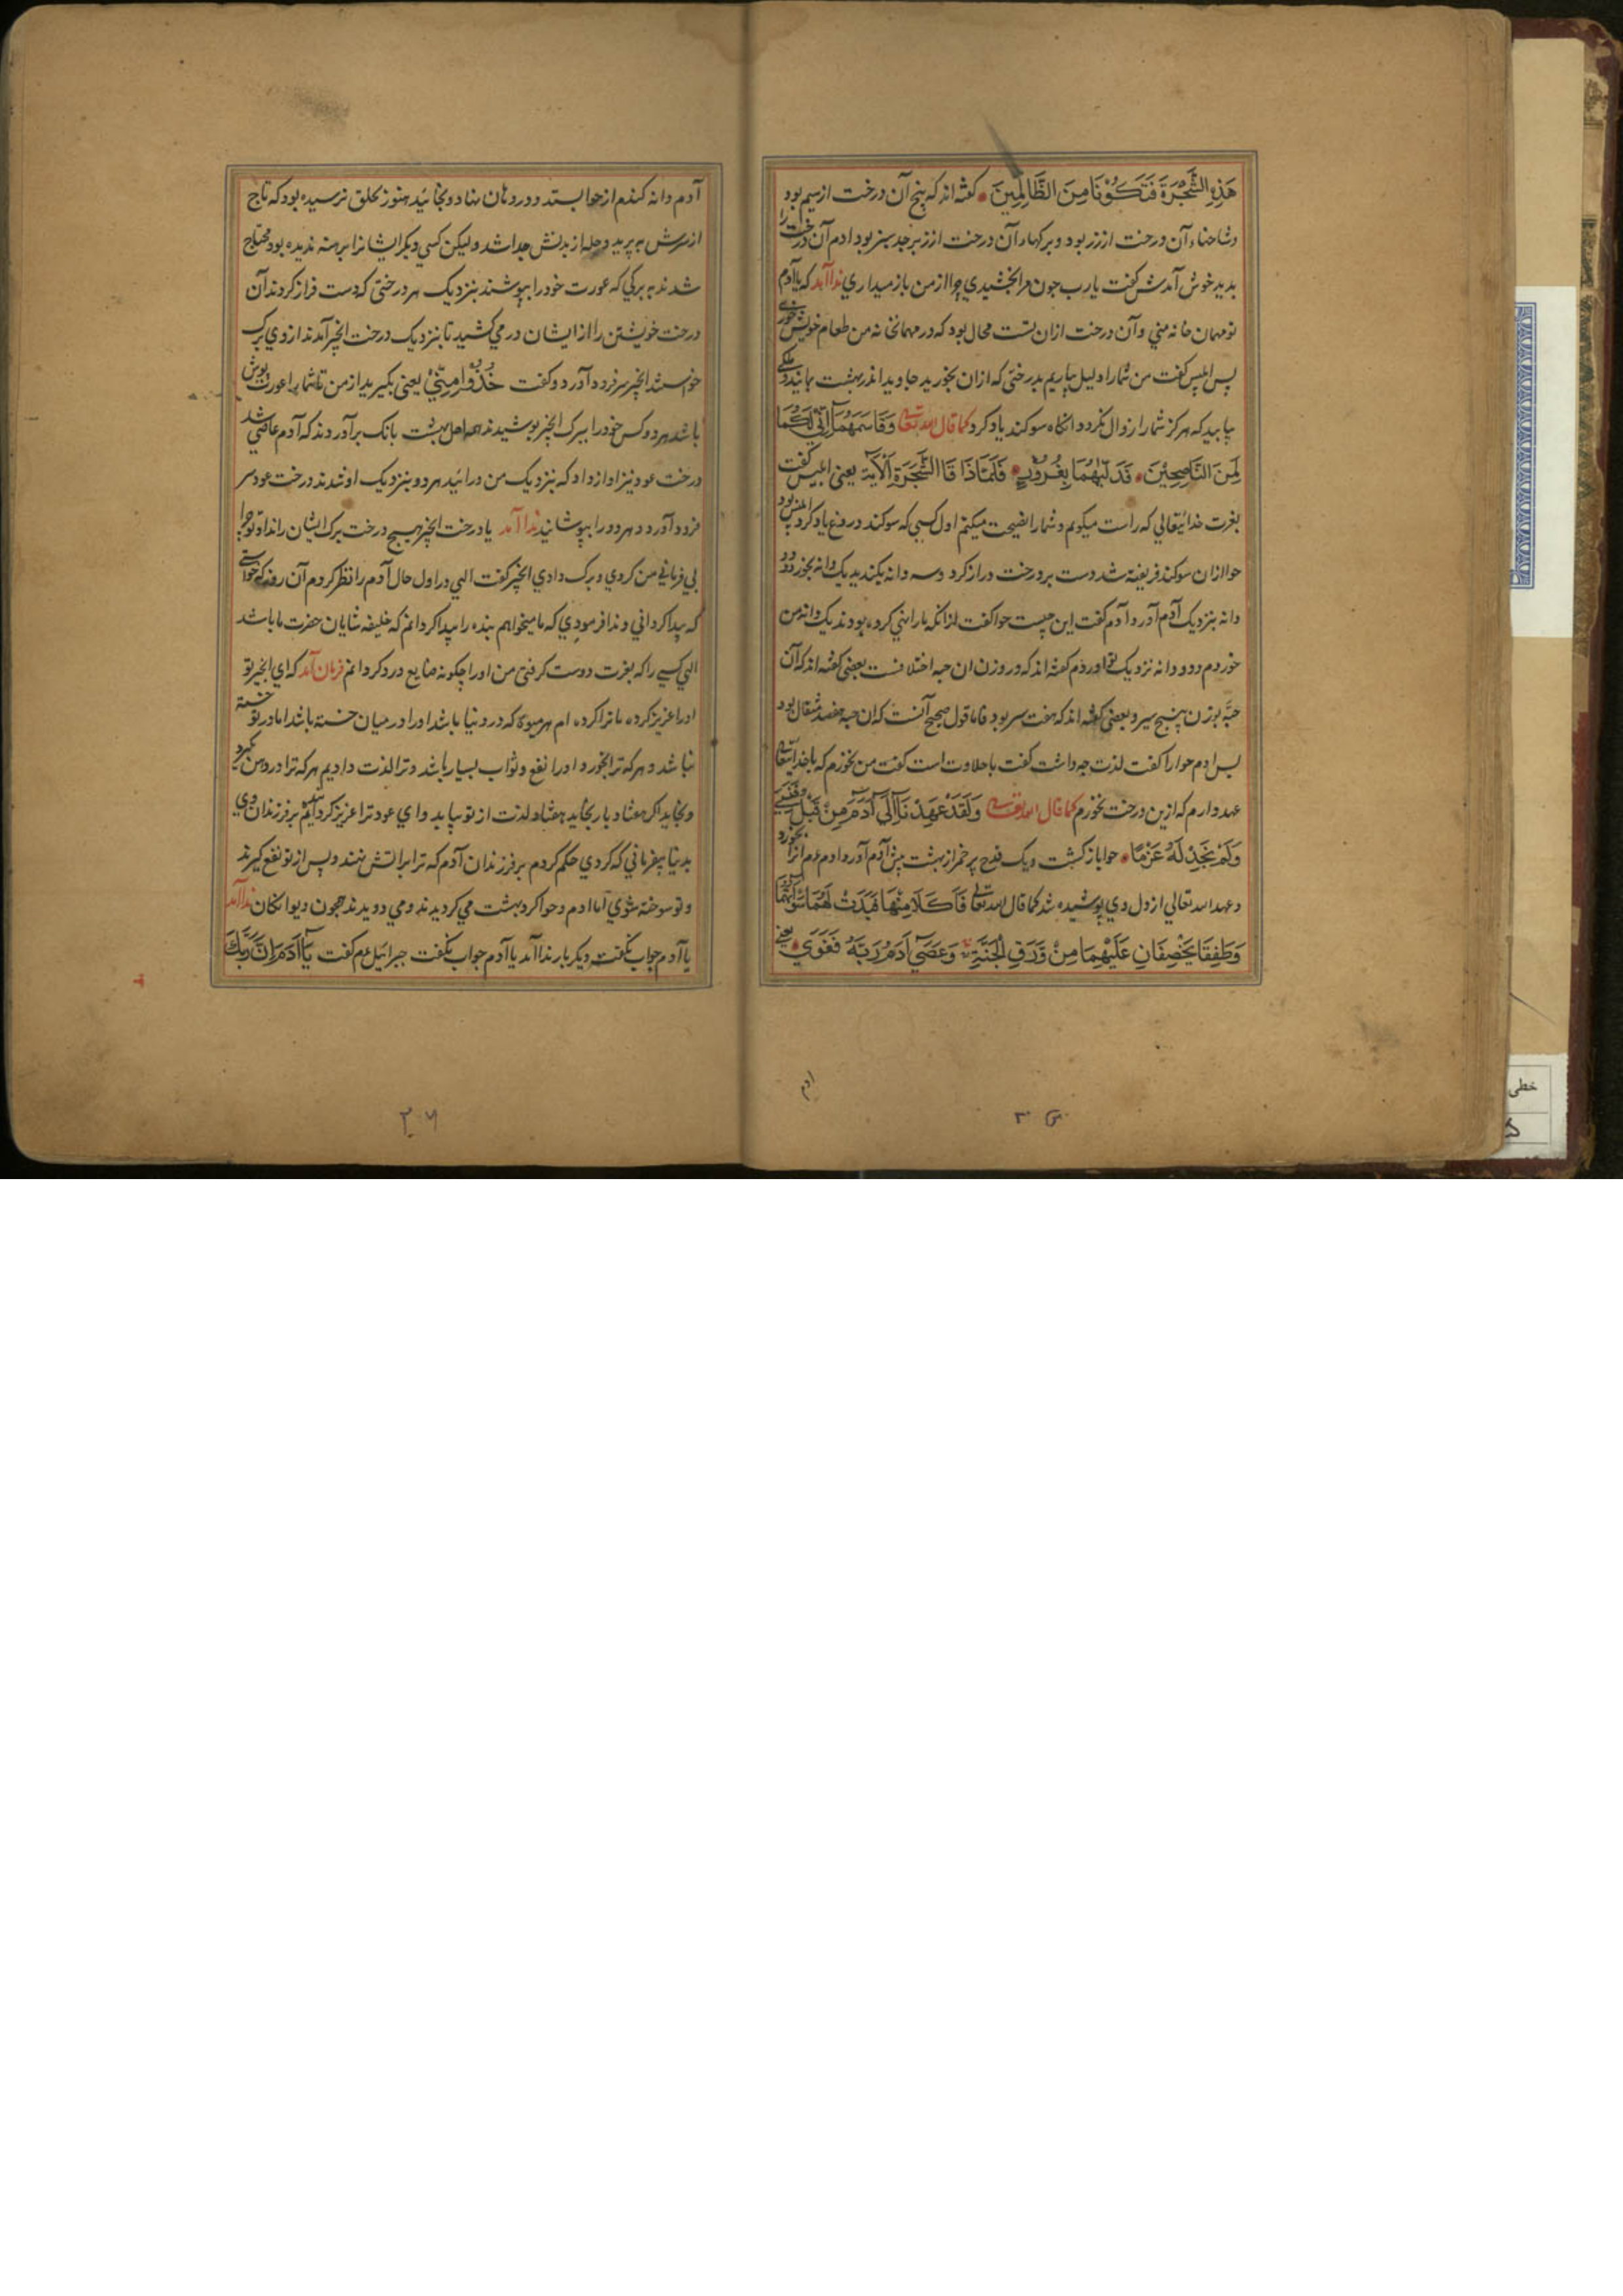 هَذِهِ الشَّجَرَةَ فَتَكُونَا مِنَ الظَّالِمِينَ کفته اند که بیخ آن درخت از سیم بود
و شاخهاء آن درخت از زر بود و برکهاء آن درخت از زبرجد سبز بود ادم آن درخت را
بدید خوش آمدش کفت یارب جون مرا بخشیدي چرا از من باز میداري ندا آمد که یا آدم
تو مهمان خانه مني و آن درخت ازان تست محال بود که در مهمانخانه من طعام خویش خوري
پس ابلیس کفت من شما را دلیل بیاریم بدرختي که ازان بخورید جاوید اندر بهشت بمانید و ملکي
بیابید که هرکز شما را زوال نکردد انکاه سوکند یاد کرد کما قال الله تعالی وَقَاسَمَهُمَا اِنِّي لَكُمَا
لَمِنَ النَّاصِحِيْنَ فَدَلّٰيهُمَا بِغُرُوْرٍ فَلَمَّا ذَاقَا الشَّجَرَةَ اَلْاٰيَة یعنی ابلیس کفت
بعزت خدائیتعالي که راست میکویم و شما را نصیحت میکنم اول کسي که سوکند دروغ یاد کرد ابلیس بود
حوا ازان سوکند فریفته شد دست بر درخت دراز کرد و سه دانه بکند یک دانه بخورد و دو
دانه بنزدیک آدم آورد آدم کفت این چیست حوا کفت ازانکه مارا نهي کرده بودند یک دانه من
خوردم و دو دانه نزدیک تو اوردم کفته اند که در وزن ان حبه اختلافست بعضي کفته اند که آن
حبّه بوزن پنج سیر و بعضي کفته اند که هفت سیر بود فاما قول صحیح آنست که ان حبه هفصد مثقال بود
پس ادم حوا را کفت لذت چه داشت کفت با حلاوت است کفت من نخورم که با خدایتعالی
عهد دارم که ازین درخت نخورم کما قال الله تعالی وَلَقَدْ عَهِدْنَآ اِلٰٓي اٰدَمَ مِنْ قَبْلُ فَنَسِيَ
وَلَمْ نَجِدْ لَهُ عَزْمًا حوا باز کشت و یک قدح پر خمر از بهشت پیش آدم آورد ادم عم انرا بخورد
و عهد الله تعالي از دل وي پوشیده شد کما قال الله تعالی فَاَكَلَا مِنْهَا فَبَدَتْ لَهُمَا سَوْاٰتُهُمَا
وَطَفِقَا يَخْصِفَانِ عَلَيْهِمَا مِنْ وَّرَقِ الْجَنَّةِ وَعَصٰٓي اٰدَمُ رَبَّهُ فَغَوٰي یعني
ادم
آدم دانه کندم از حوا بستد و در دهان نهاد و بخائید هنوز بحلق نرسیده بود که تاج
از سرش بپرید و حله از بدنش جدا شد ولیکن کسي دیکر ایشانرا برهنه ندیده بود محتاج
شدند به برکي که عورت خود را بپوشند بنزدیک هر درختي که دست فراز کردند آن
درخت خویشتن را از ایشان در مي کشید تا بنزدیک درخت انجیر آمدند از وي برک
خواستند انجیر سر فرود آورد و کفت خُذُوْا مِنِّيْ یعني بکیرید از من تا شما را عورت پوش
باشد هر دو کس خود را ببرک انجیر بوشیدند همه اهل بهشت بانک برآوردند که آدم عاصي شد
درخت عود نیز اواز داد که بنزدیک من درائید هر دو بنزدیک او شدند درخت عود سر
فرود آورد و هر دو را بپوشانید ندا آمد یا درخت انجیر هیچ درخت برک ایشان را نداد تو چرا
بي فرماني من کردي و برک دادي انجیر کفت الهي در اول حال آدم را نظر کردم آن روز که خواستي
که پیدا کرداني و ندا فرمودي که ما میخواهم بنده را پیدا کردانم که خلیفه شایان حضرت ما باشد
الهي کسي را که بعزت دوست کرفتي من او را چکونه ضایع و رد کردانم فرمان آمد که اي انجیر تو
او را عزیز کرده ما ترا کرده ام هر میوهٔ که در دنیا باشد او را در میان خسته باشد اما در تو خسته
نباشد و هر که ترا بخورد او را نفع و ثواب بسیار باشد و ترا لذت دادیم هر که ترا در دهن بکیرد
و بخاید اکر هفتاد بار بخاید هفتاد لذت از تو بیابد و اي عود ترا عزیز کردانیم بر فرزندان وي
بدنیا بیفرماني که کردي حکم کردم بر فرزندان آدم که ترا بر آتش نهند و پس از تو نفع کیرند
و تو سوخته شوي اما ادم و حوا کرد بهشت مي کردیدند و مي دویدند همچون دیوانکان ندا آمد
یا آدم جواب نکفت دیکر بار ندا آمد یا آدم جواب نکفت جبرائیل عم کفت يَآ اٰدَمُ اِنَّ رَبَّكَ
خطی